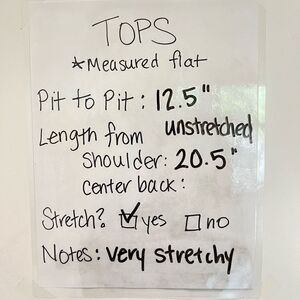 TOPS
*Measured flat
Pit to Pit: 12.5"
unstretched
Length from
Shoulder: 20.5"
center back:
Stretch? ☑ yes ☐ no
Notes: very stretchy